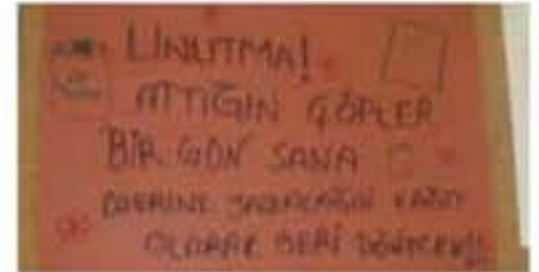 UNUTMA!
ATTIĞIN ÇÖPLER
BİR GÜN SANA
ÜZERİNE YAZACAĞIN KAĞIT
OLARAK GERİ DÖNECEK!!